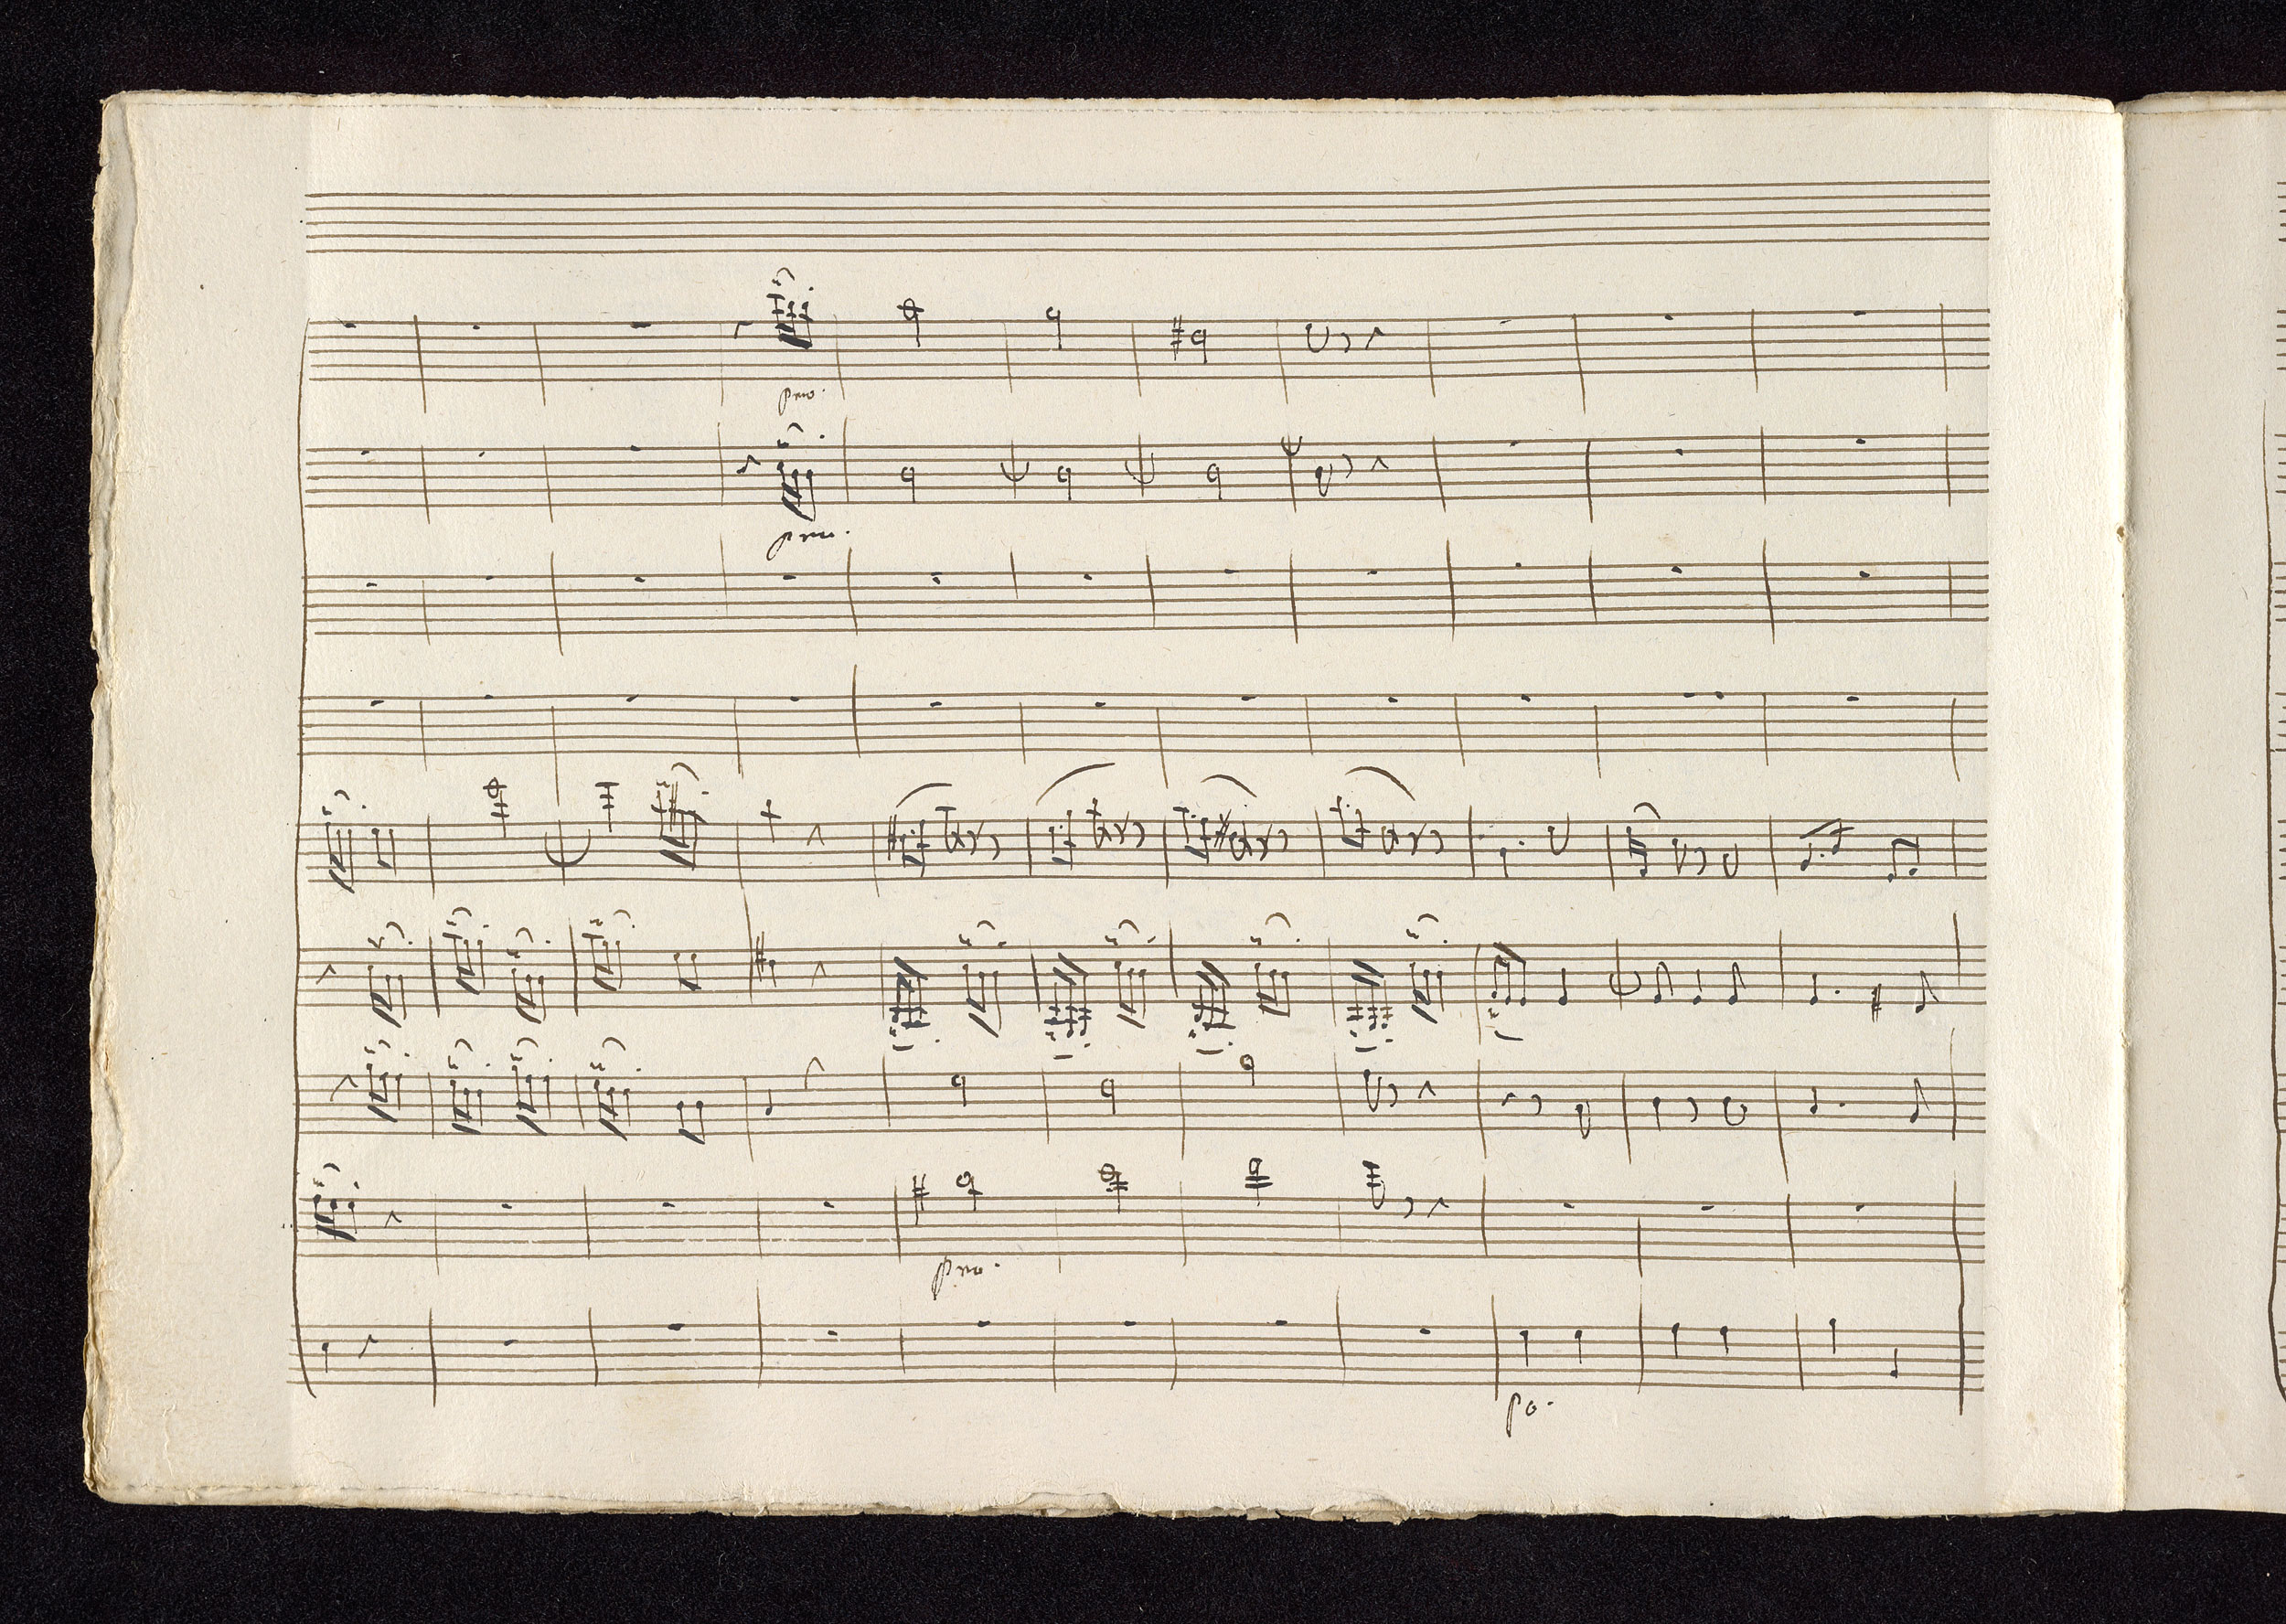 pmo.
pmo.
pmo.
po.